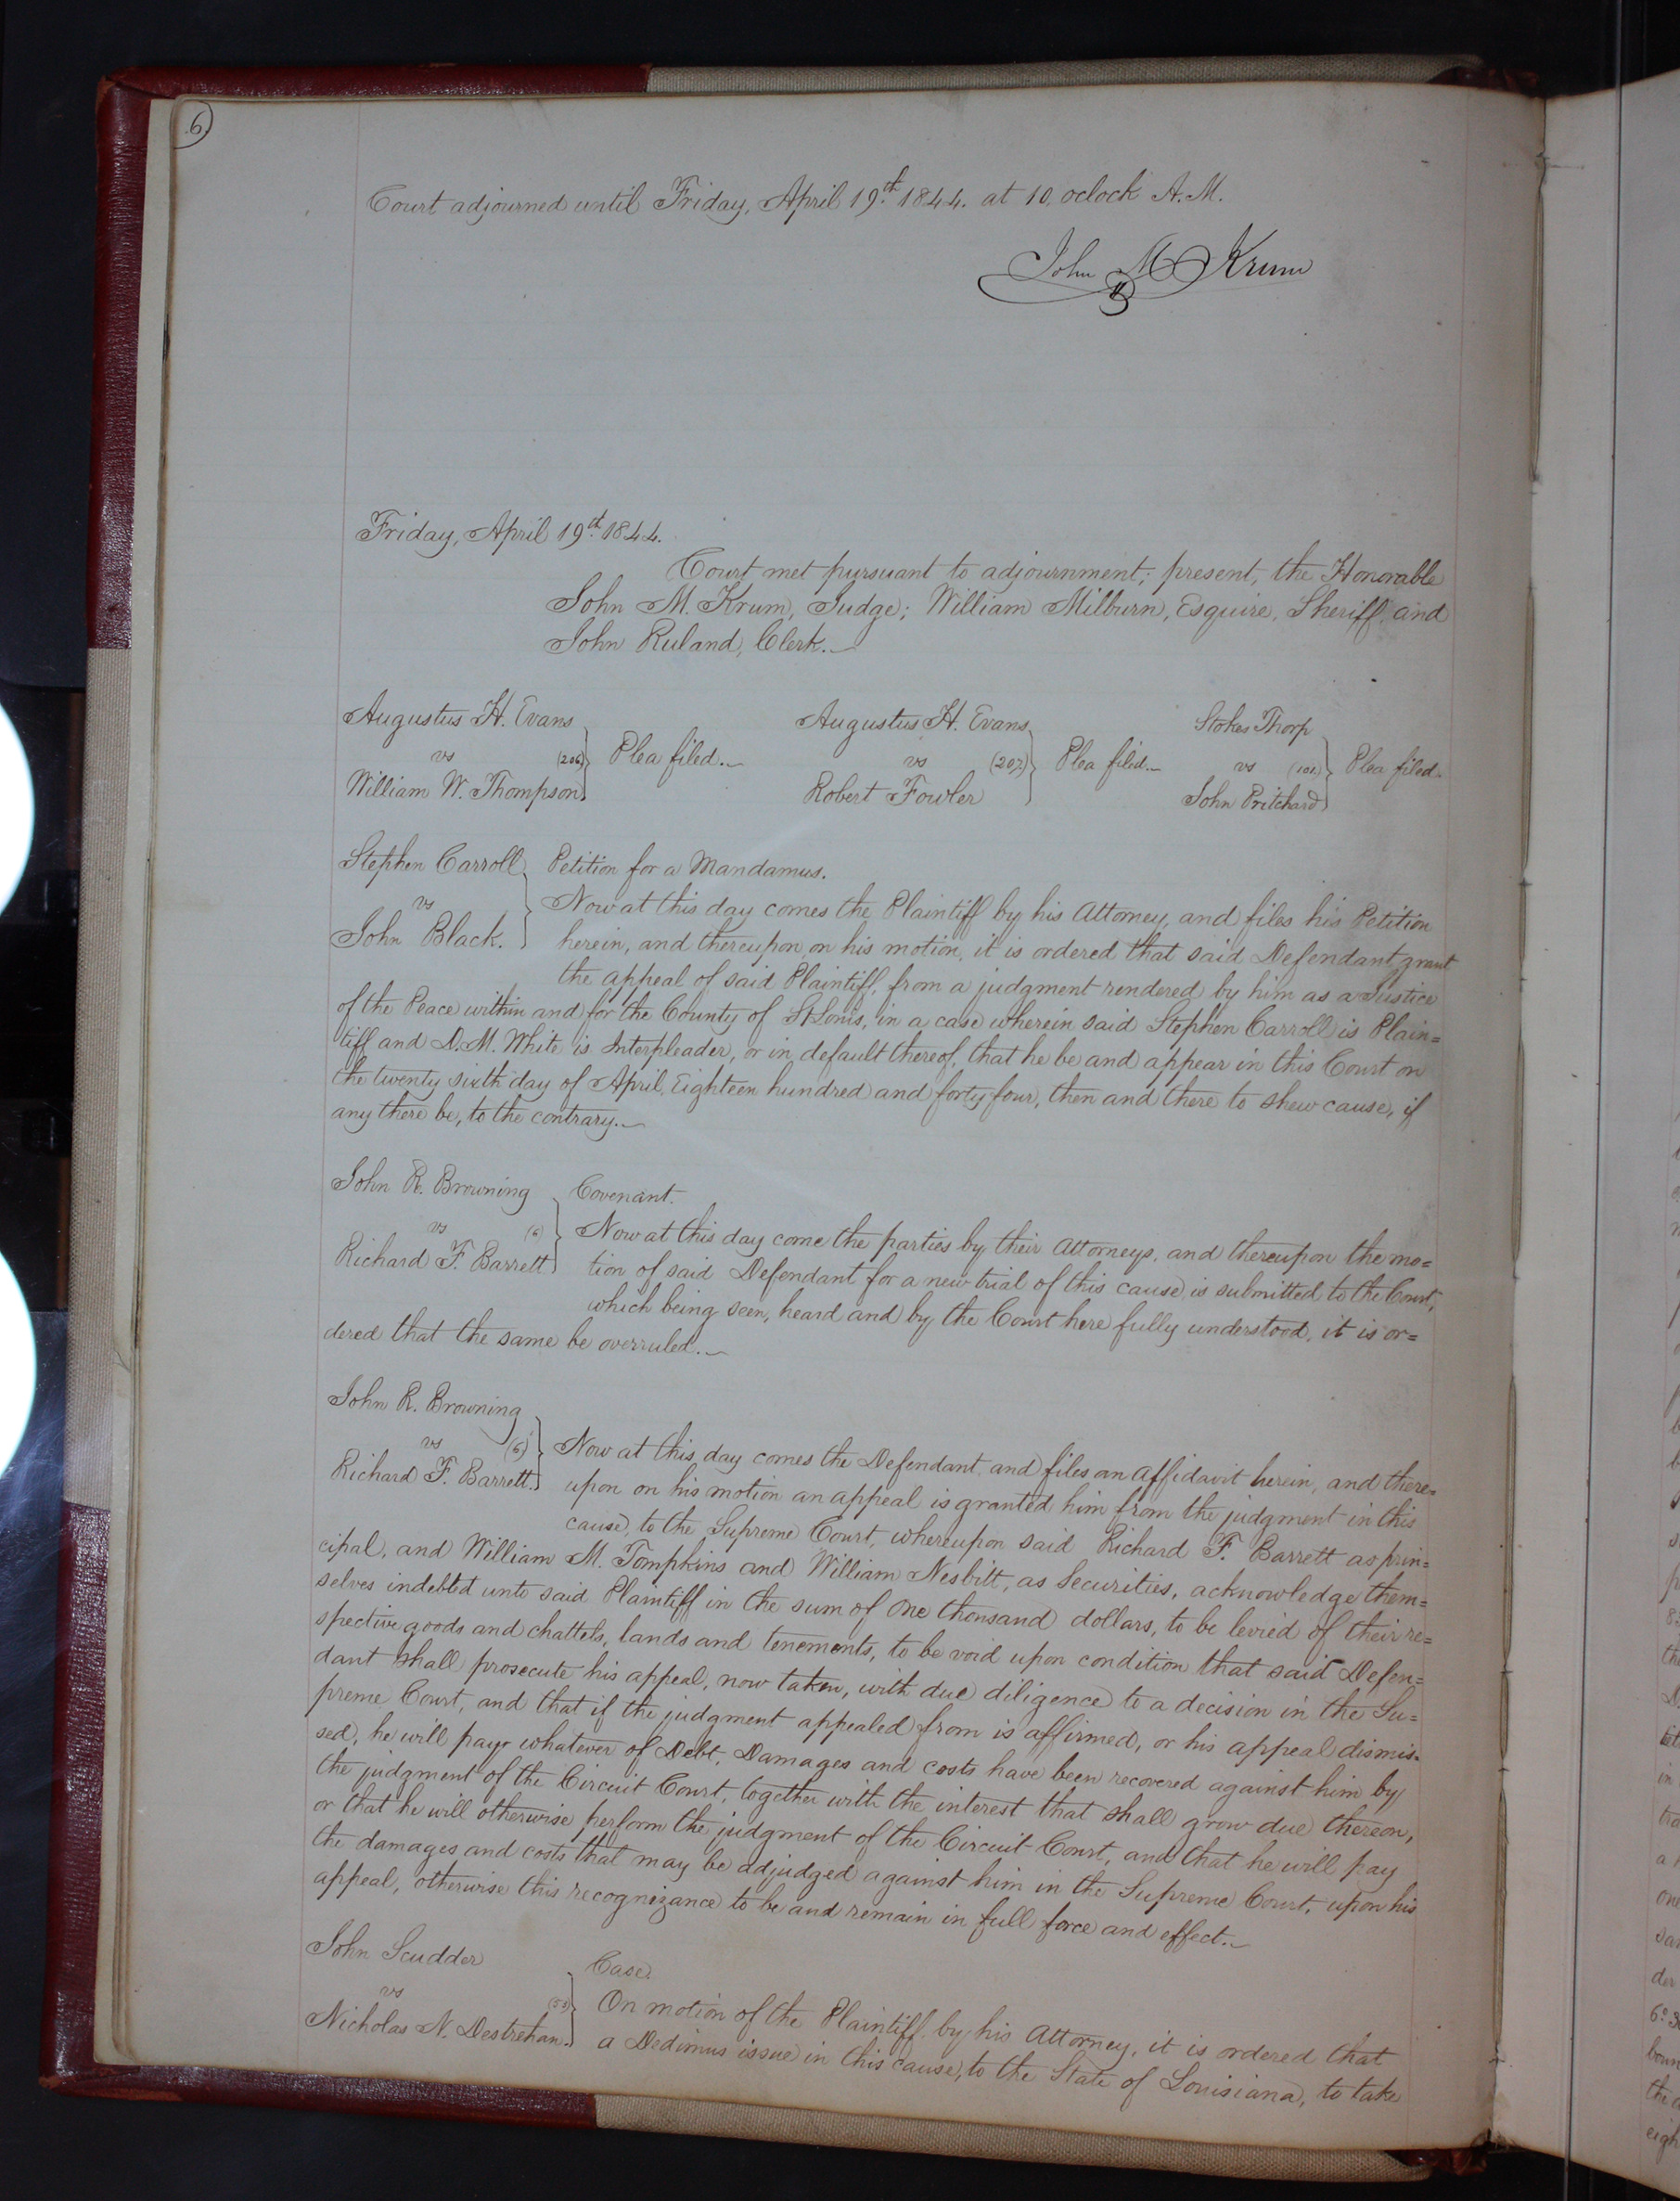 6.
Court adjourned until Friday, April 19th 1844. at 10, oclock A.M.
John M Krum
Friday, April 19th 1844.
Court met pursuant to adjournment; present, the Honorable
John M. Krum, Judge; William Milburn, Esquire, Sheriff, and
John Ruland, Clerk.
Augustus H. Evans
vs (206) Plea filed.
William W. Thompson
Augustus H. Evans
vs (207) Plea filed.
Robert Fowler
Stokes Thorp
vs (101) Plea filed.
John Pritchard
Stephen Carroll Petition for a Mandamus.
vs Now at this day comes the Plaintiff by his Attorney, and files his Petition
John Black. herein, and thereupon, on his motion, it is ordered that said Defendant grant
the appeal of said Plaintiff, from a judgment rendered by him as a Justice
of the Peace within and for the County of St Louis, in a case wherein said Stephen Carroll is Plain=
tiff and D. M. White is Interpleader, or in default thereof, that he be and appear in this Court on
the twenty sixth day of April, Eighteen hundred and forty four, then and there to shew cause, if
any there be, to the contrary.
John R. Browning Covenant.
vs (6) Now at this day come the parties by their Attorneys, and thereupon the mo=
Richard F. Barrett tion of said Defendant for a new trial of this cause is submitted to the Court,
which being seen, heard and by the Court here fully understood, it is or=
dered that the same be overruled.
John R. Browning
vs (6) Now at this day comes the Defendant, and files an affidavit herein, and there=
Richard F. Barrett. upon on his motion an appeal is granted him from the judgment in this
cause, to the Supreme Court, whereupon said Richard F. Barrett as prin=
cipal, and William M. Tompkins and William Nesbitt, as Securities, acknowledge them=
selves indebted unto said Plaintiff in the sum of One thousand dollars, to be levied of their re=
spective goods and chattels, lands and tenements, to be void upon condition that said Defen=
dant shall prosecute his appeal, now taken, with due diligence to a decision in the Su=
preme Court, and that if the judgment appealed from is affirmed, or his appeal dismis=
sed, he will pay whatever of Debt, Damages and costs have been recovered against him by
the judgment of the Circuit Court, together with the interest that shall grow due thereon,
or that he will otherwise perform the judgment of the Circuit Court, and that he will pay
the damages and costs that may be adjudged against him in the Supreme Court, upon his
appeal, otherwise this recognizance to be and remain in full force and effect.
John Scudder Case.
vs On motion of the Plaintiff by his Attorney, it is ordered that
Nicholas N. Destrehan. a Dedimus issue in this cause, to the State of Louisiana, to take